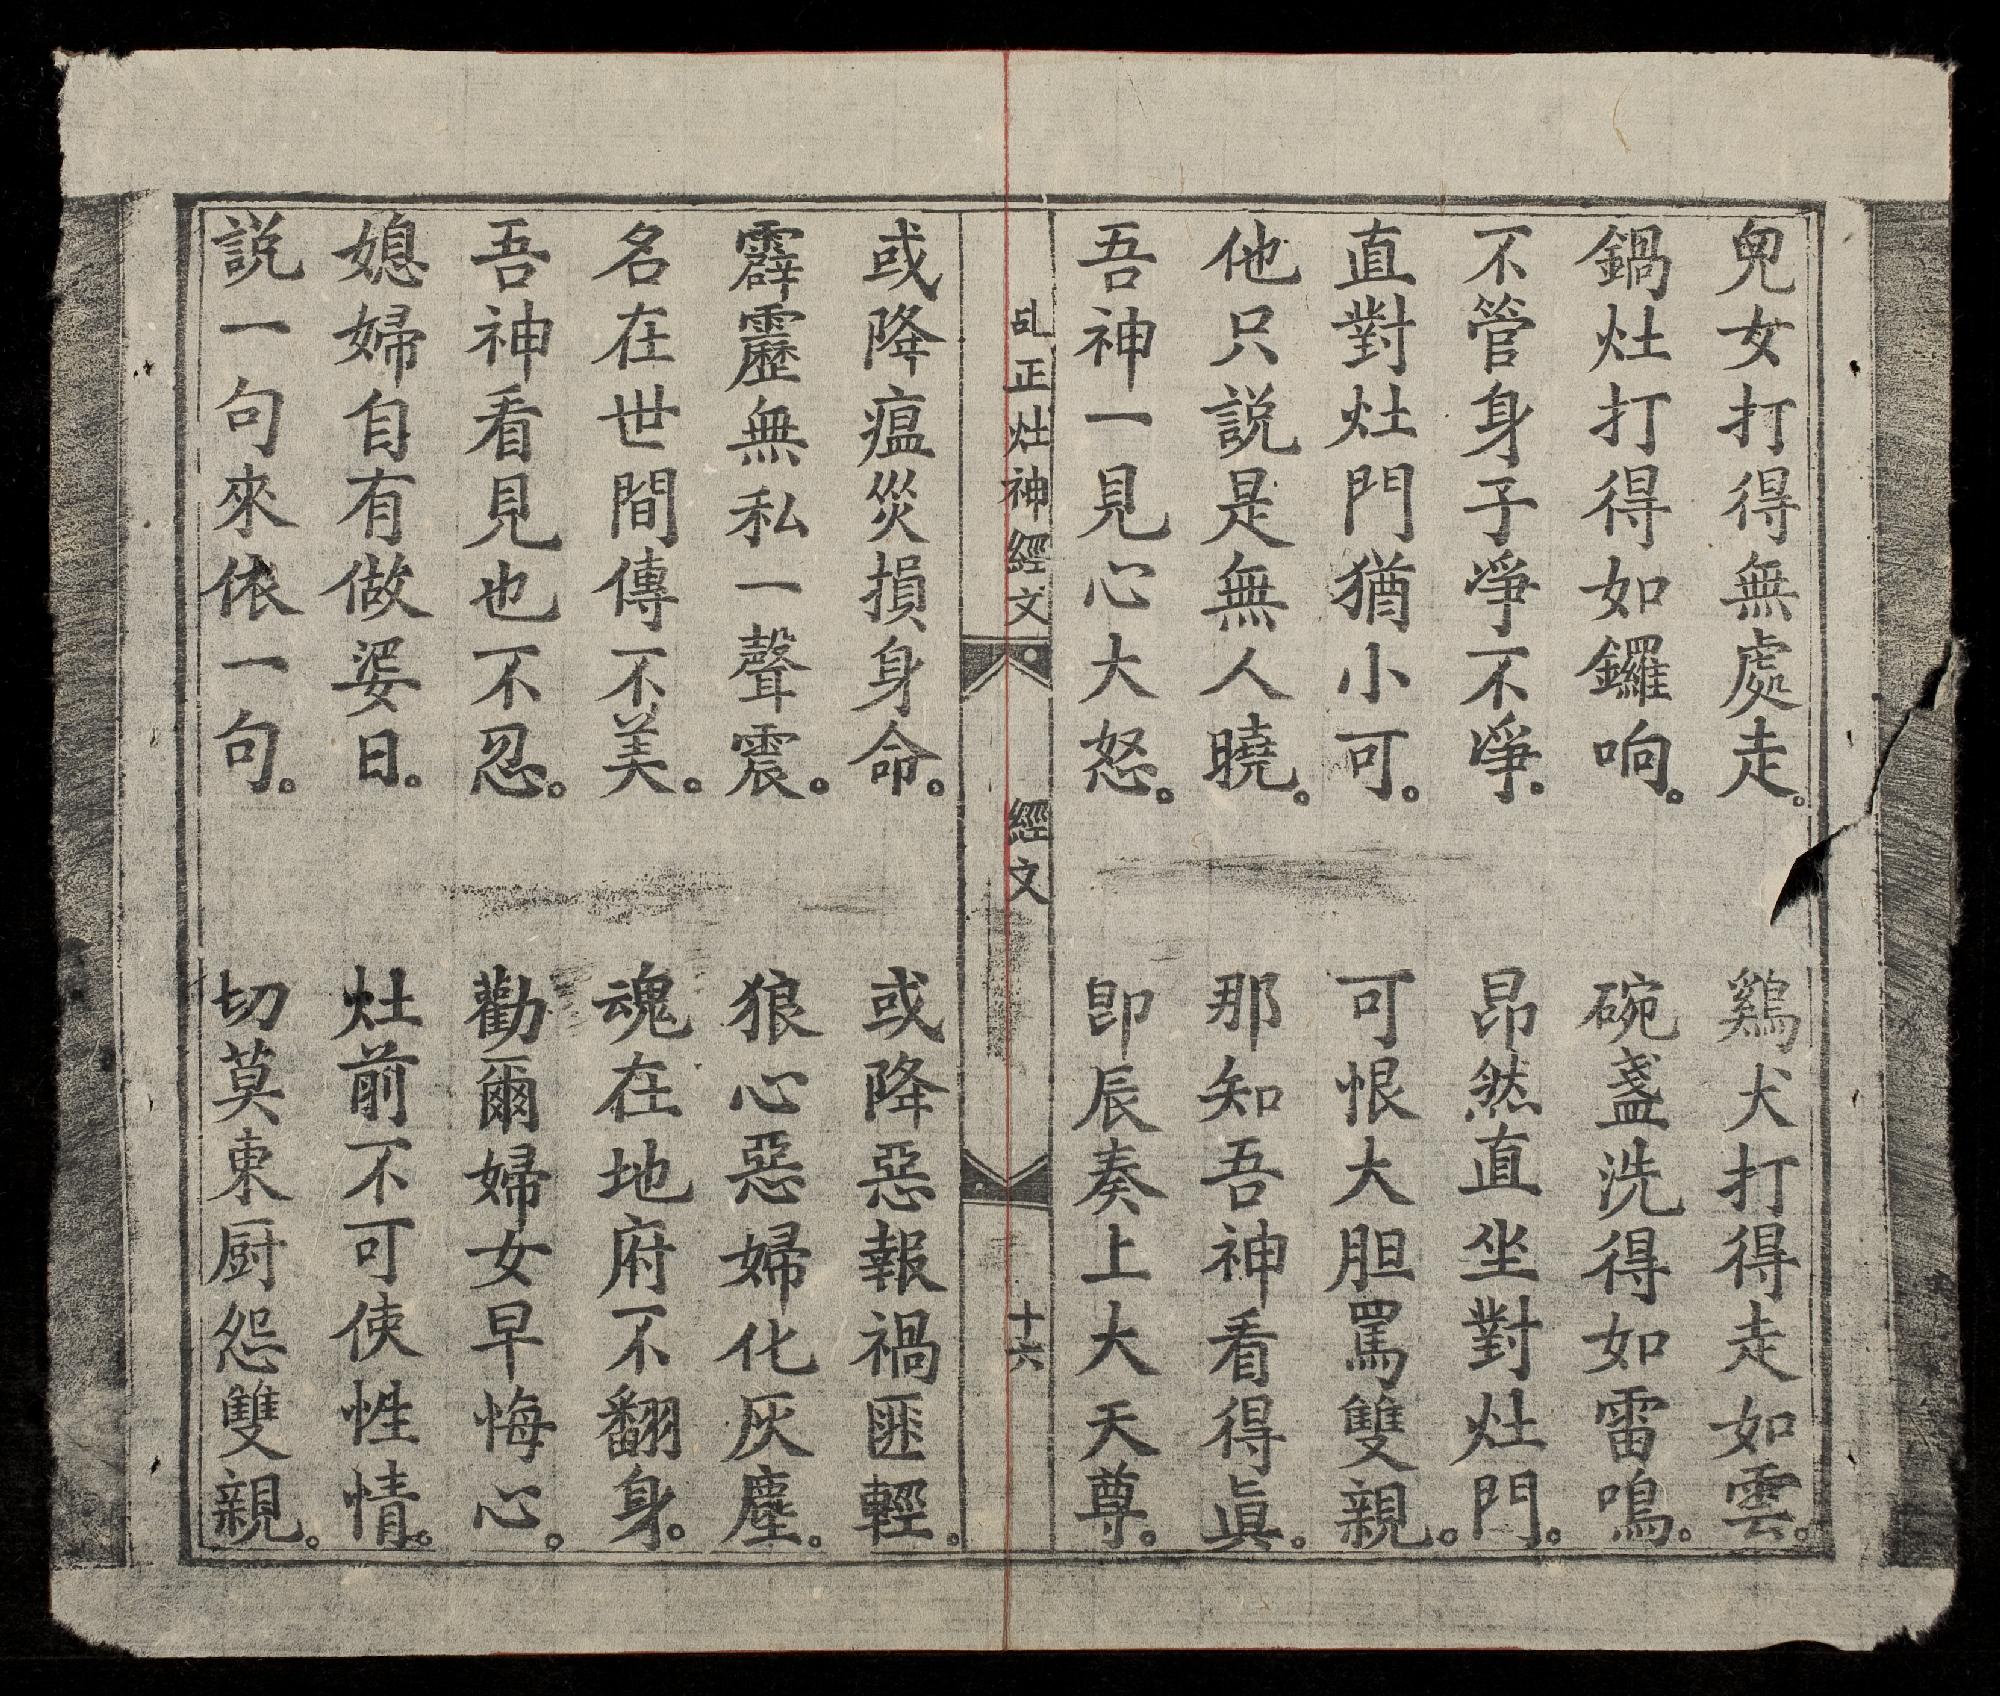 兒女打得無處走。　鷄犬打得走如雲。
鍋灶打得如鑼响。　碗盞洗得如雷鳴。
不管身子淨不淨。　昂然直坐對灶門。
直對灶門猶小可。　可恨大胆罵雙親。
他只説是無人曉。　那知吾神看得眞。
吾神一見心大怒。　即辰奏上大天尊。
乩正灶神經文　經文　十六
或降瘟災損身命。　或降惡報禍匪輕。
霹靂無私一聲震。　狼心惡婦化灰塵。
名在世間傳不美。　魂在地府不翻身。
吾神看見也不忍。　勸爾婦女早悔心。
媳婦自有做婆日。　灶前不可使性情。
説一句來依一句。　切莫東厨怨雙親。